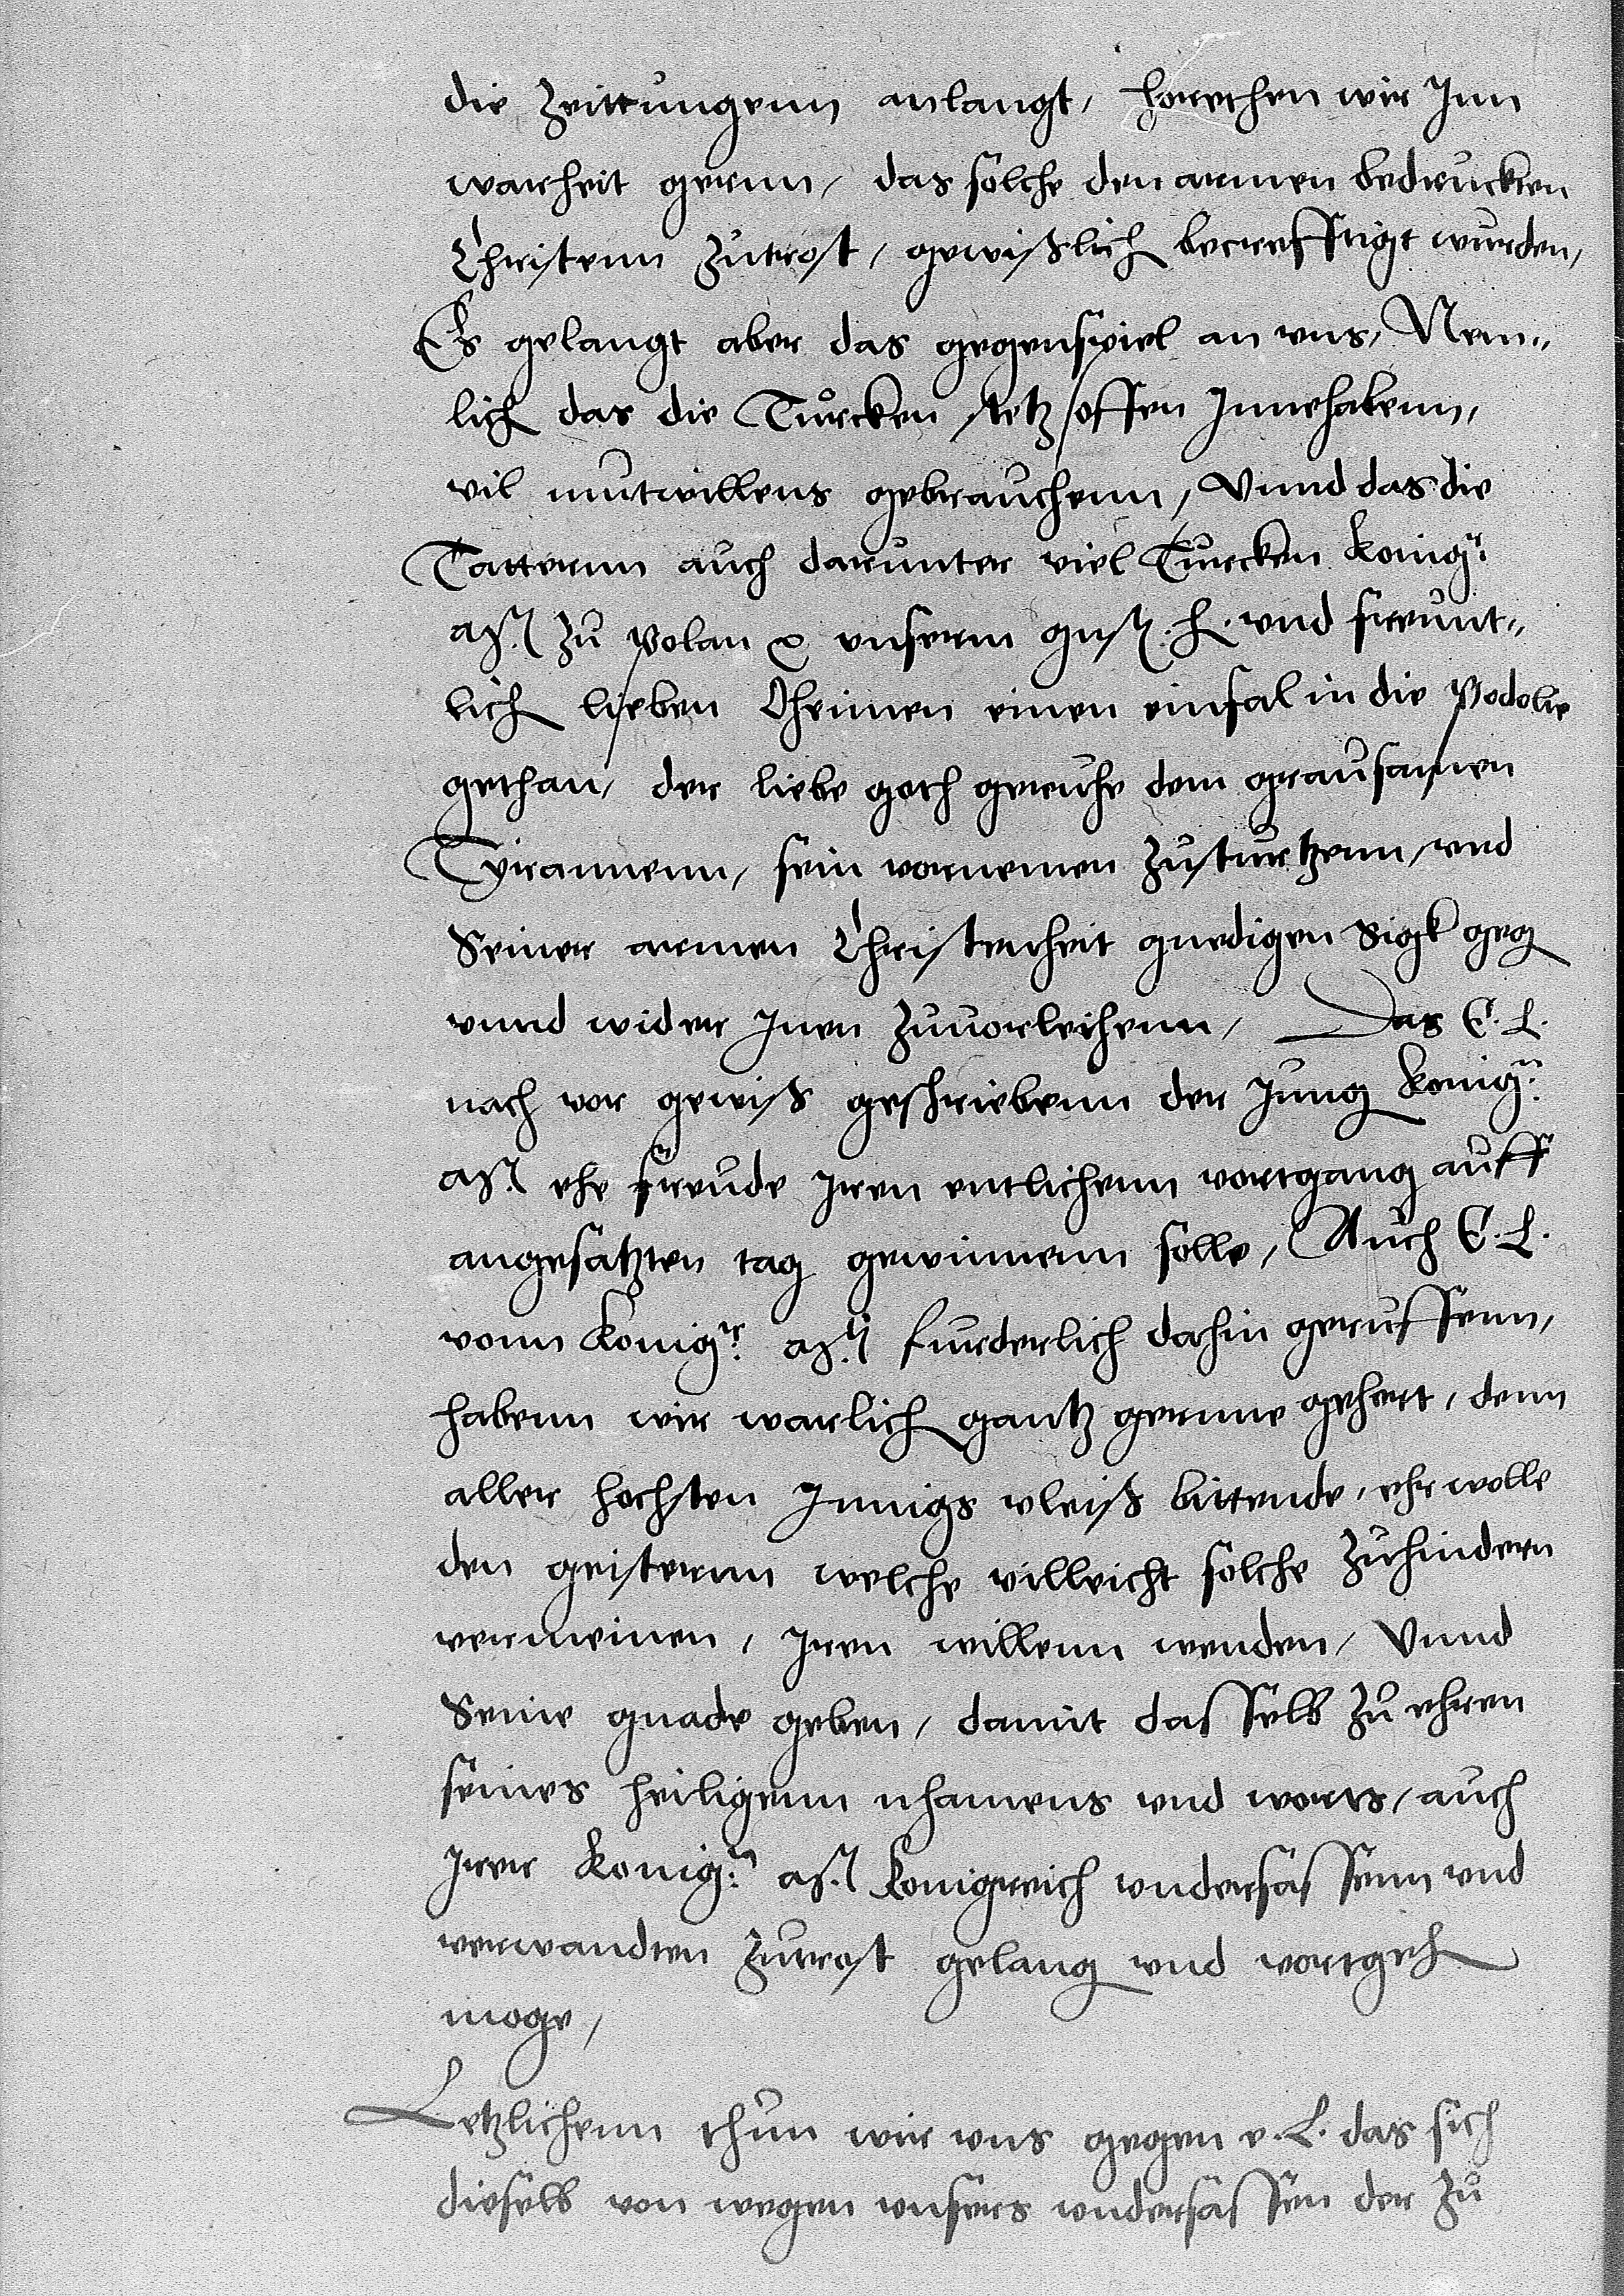 die Zeittungenn anlangt, horethen wir Inn
warheit gernn, das solche den armen bedruckten
Christenn zutrost, gewißlich becrefftigt wurden,
Es gelangt aber das gegenspiel an vns, Nem„
lich das die Turcken Offen Innehabenn,
vil mutwillens gebrauchenn, Vnnd das die
Tatternn auch darunter viel Turcken Konigr.
Mt. zu Polan x vnserm gnst. h. vnd freunt„
lich lieben Oheimen einen einfal in die Podolie
gethan, der liebe goth geruhe dem grausamen
Tyrannenn, sein vornemen zusturtzenn, vnd
Seiner armen Christenheit gnedigen Sigk geg
vnnd wider Inen zuuorleihenn, Das E. L.
nach vor gewiß geschriebenn der Jung Konigr.
Mt. ehr freude Iren entlichenn vortgang auff
angesatzten tag gewinnenn solle, Auch E. L.
vonn Konigr. Mt. furderlich dahin geruffenn,
habenn wir warlich gantz gernne gehert, denn
aller hochsten Innigs vleiß bittende, ehr wolle
den geisternn welche villeicht solche zuhindern
vermeinen, Iren willenn wenden, Vnnd
Seine gnade geben, damit dasselb zu ehren
seines heiligenn nhamens vnd worts, auch
Irer Konigr. Mt. Konigreich vndersassenn vnd
verwandten zutrost gelang vnd vortgeh
moge,
Letzlichenn thun wir vns gegen e. L. das sich
dieselb von wegen vnsers vndersassen der zu